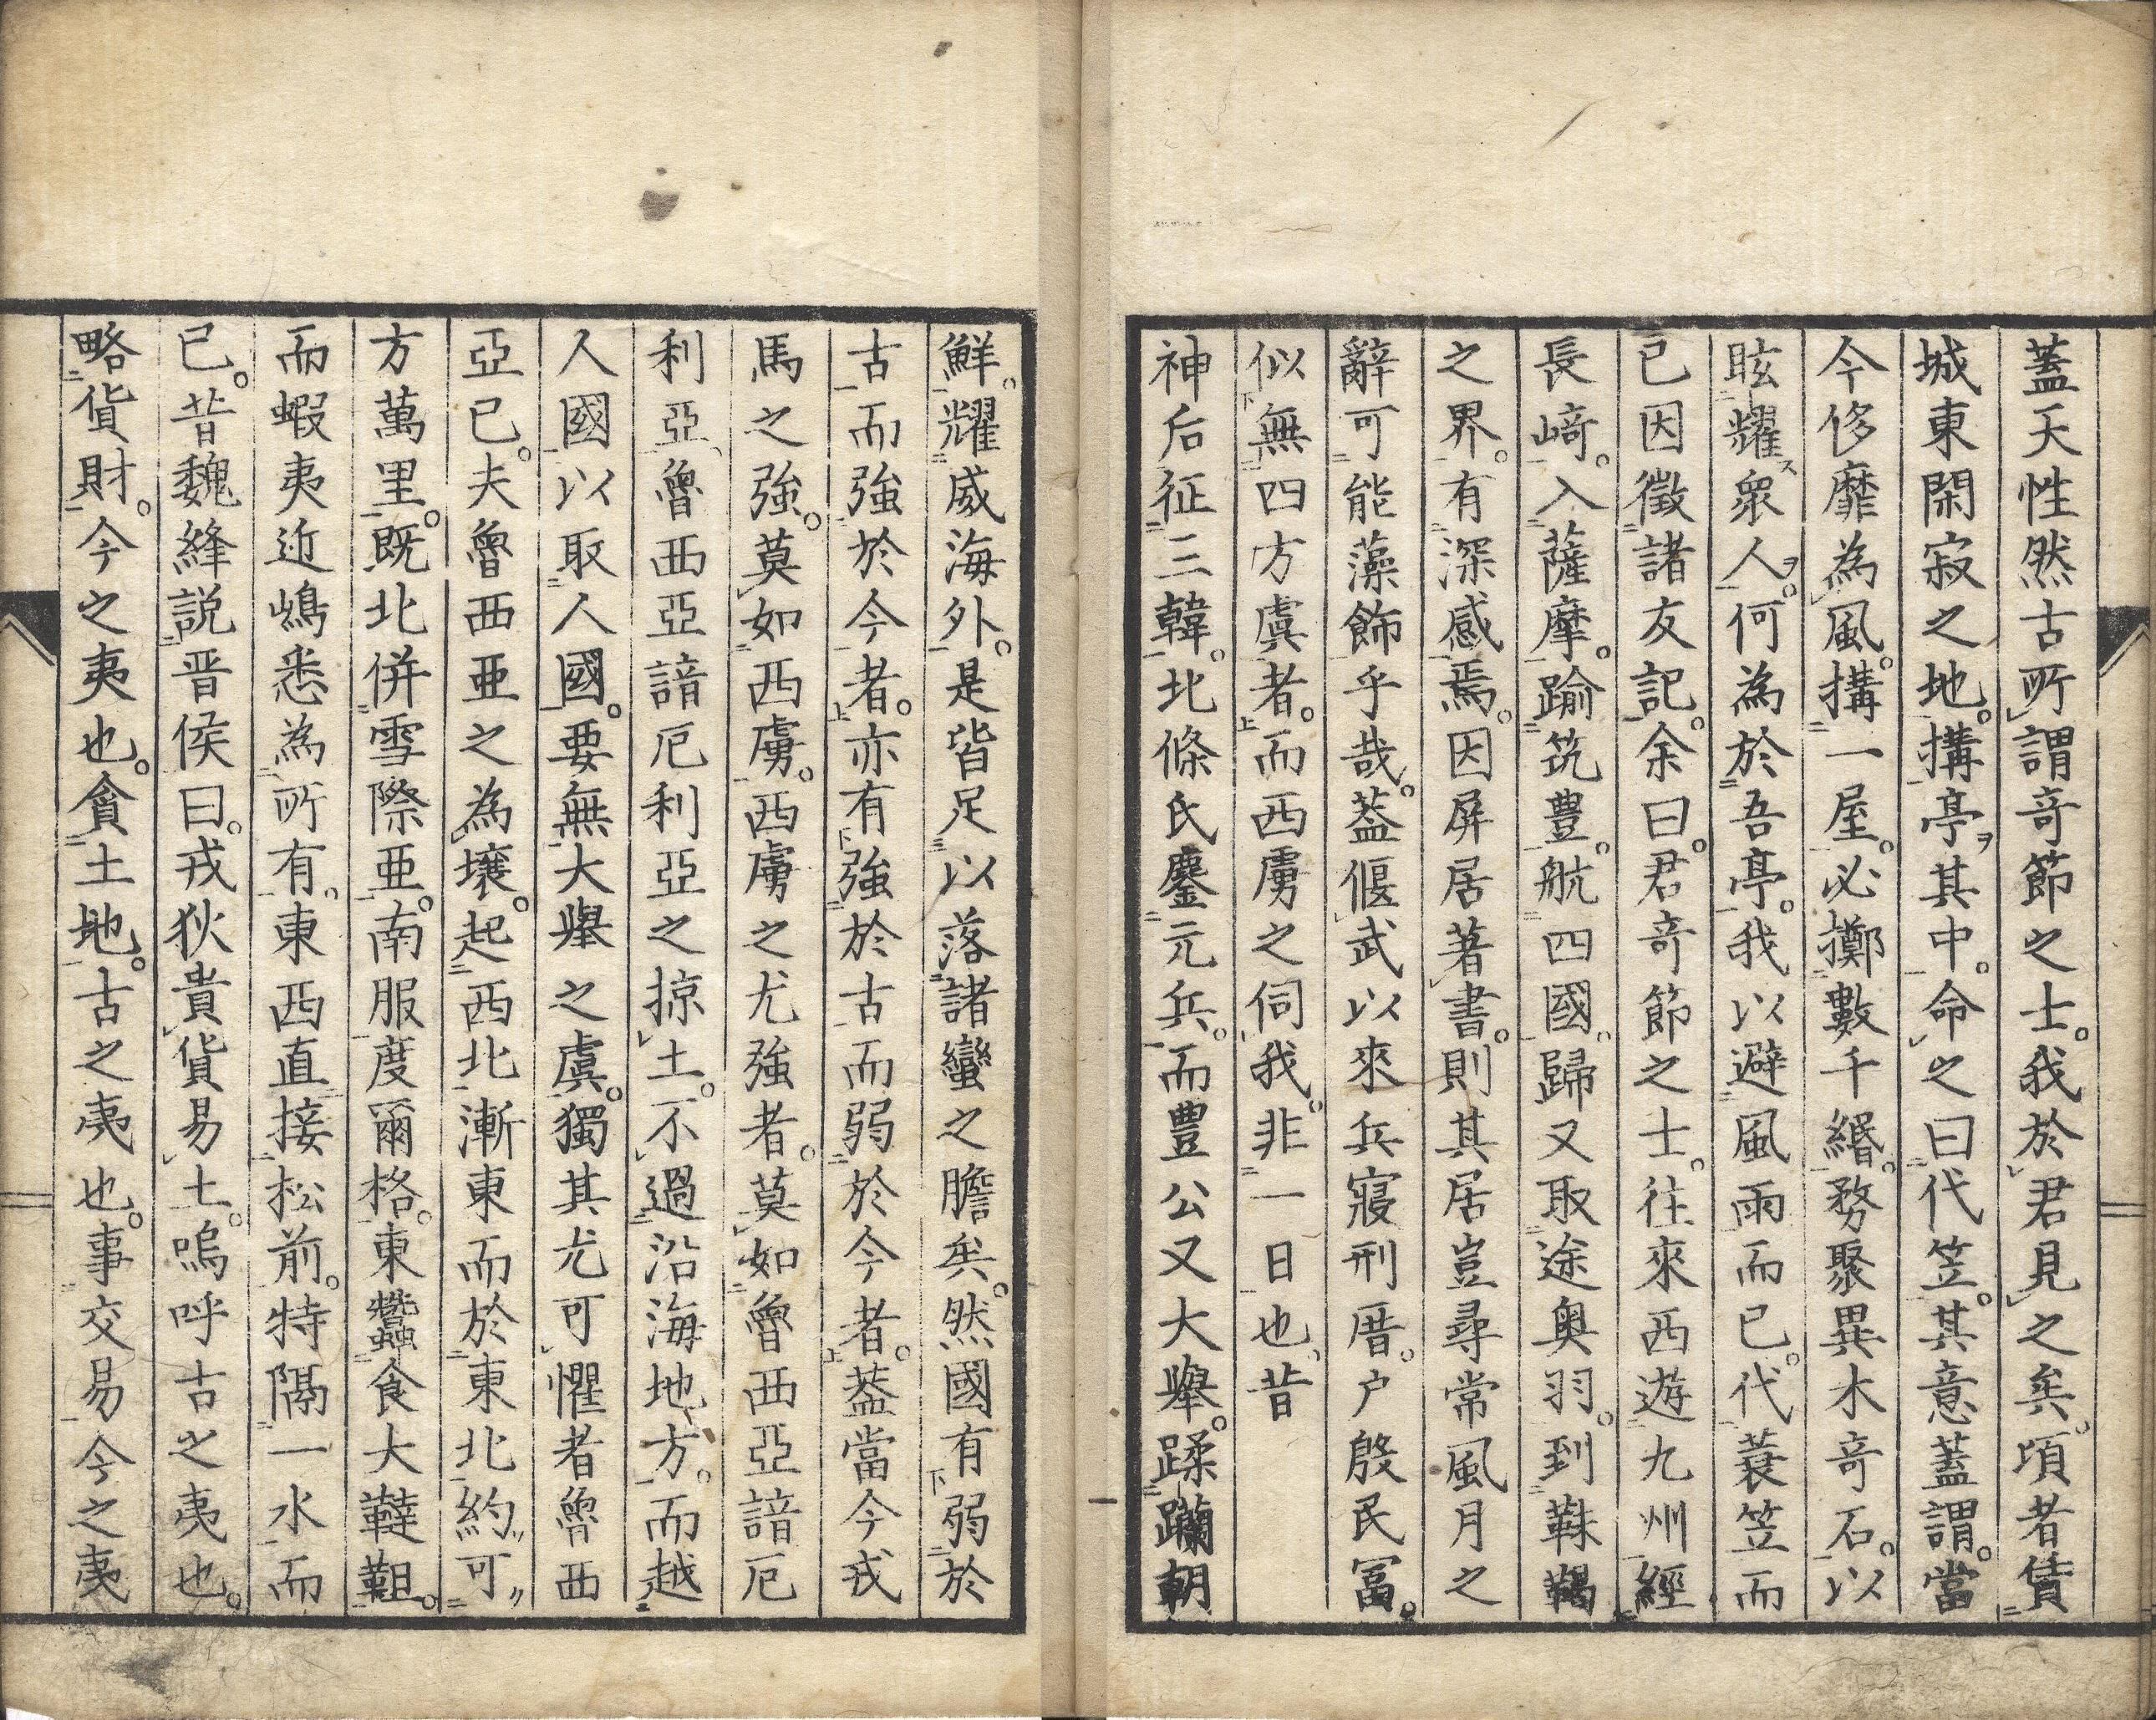 蓋天性然古所謂奇節之士。我於君見之矣。頃者賃
城東閑寂之地。搆亭ヲ其中。命之曰代笠。其意蓋謂。當
今侈靡為風。搆一屋。必擲數千緡。務聚異木奇石。以
眩耀ス衆人ヲ。何為於吾亭。我以避風雨而已。代蓑笠而
已因徵諸友記。余曰。君奇節之士。往來西遊九州經
長﨑。入薩摩。踰筑豊。航四國。歸又取途奥羽。到靺鞨
之界。有深感焉。因屏居著書。則其居豈尋常風月之
辭可能藻飾乎哉。蓋偃武以來兵寢刑厝。戸殷民冨。
似無四方虞者。而西虜之伺我。非一日也、昔
神后征三韓。北條氏鏖元兵。而豊公又大舉。蹂躪朝
鮮。耀威海外。是皆足以落諸蠻之膽矣。然國有弱於
古而強於今者。亦有強於古而弱於今者。蓋當今戎
馬之強。莫如西虜。西虜之尤強者。莫如魯西亞諳厄
利亞、魯西亞諳厄利亞之掠土。不過沿海地方。而越
人國以取人國。要無大舉之虞。獨其尤可懼者魯西
亞已。夫魯西亜之為壤。起西北漸東而於東北約可
方萬里。既北併雪際亜。南服度爾格。東蠶食大韃靼。
而蝦夷近嶋悉為所有。東西直接松前。特隔一水而
已。昔魏絳説晋侯曰。戎狄貴貨易土。嗚呼古之夷也。
略貨財。今之夷也。貪土地。古之夷也。事交易今之夷